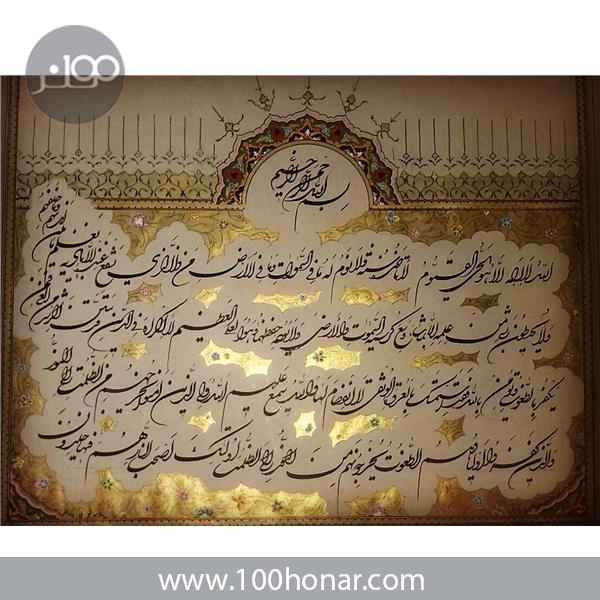 100 هنر
بسم الله الرحمن الرحیم
الله لا اله الا هو الحی القیوم لا تاخذه سنة و لا نوم له ما فی السموات و ما فی الارض من ذا الذی یشفع عنده الا باذنه یعلم ما بین ایدیهم و ما خلفهم
ولا یحیطون بشیء من علمه الا بما شاء وسع کرسیه السموات والارض ولا یؤده حفظهما و هو العلی العظیم لا اکراه فی الدین قد تبین الرشد من الغی فمن
یکفر بالطغوت و یؤمن بالله فقد استمسک بالعروة الوثقی لا انفصام لها والله سمیع علیم الله ولی الذین امنوا یخرجهم من الظلمت الی النور
والذین کفروا اولیاؤهم الطغوت یخرجونهم من النور الی الظلمت اولئک اصحب النار هم فیها خلدون
www.100honar.com